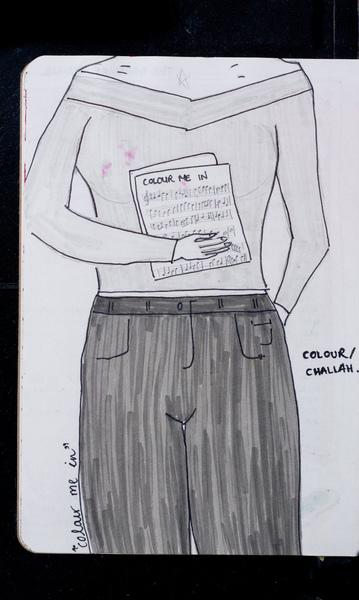 COLOUR ME IN
COLOUR/
CHALLAH.
"colour me in"